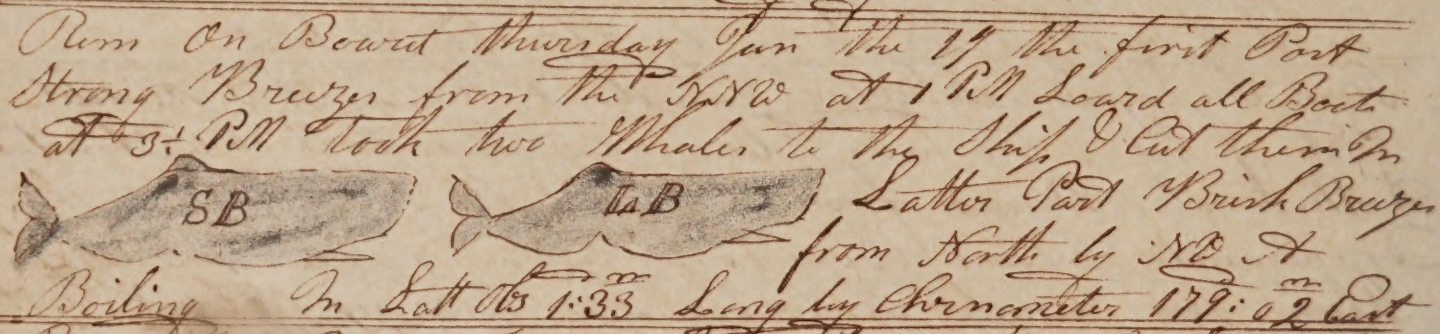 Rem On Board thursday Jan the 19 the first Part
Strong Breezes from the NNW at 1 PM Loard all Boats
at 3½ PM took two Whales to the Ship & Cut them In
SB LB Latter Part Brisk Breezes
from North by NW A
Boiling In Latt Obs 1:33 Long by Chrnometer 179:02 East